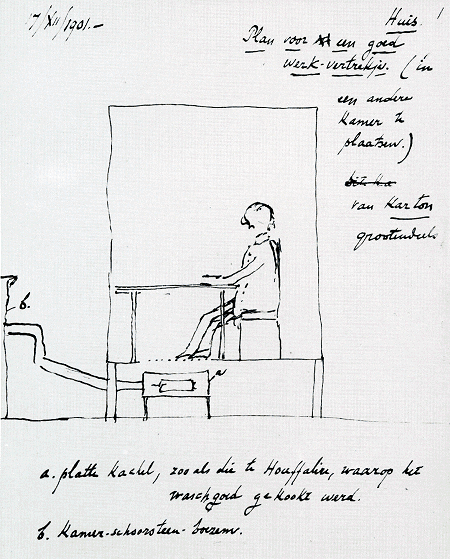 17/XII/1901.—
Huis. 1
Plan voor een goed
werk-vertrekje. (in
een andere
kamer te
plaatsen.)
van Karton
grootendeels
b.
a
a. platte Kachel, zooals die te Houffalize, waarop het
waschgoed gekookt werd.
b. Kamer-schoorsteen-boezem.